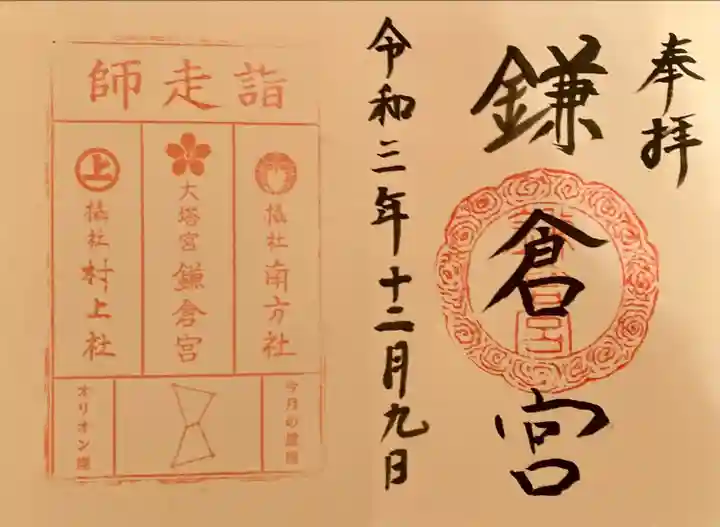 奉拝
鎌倉宮
令和三年十二月九日
師走詣
摂社 南方社
大塔宮 鎌倉宮
上
摂社 村上社
今月の星座
オリオン座